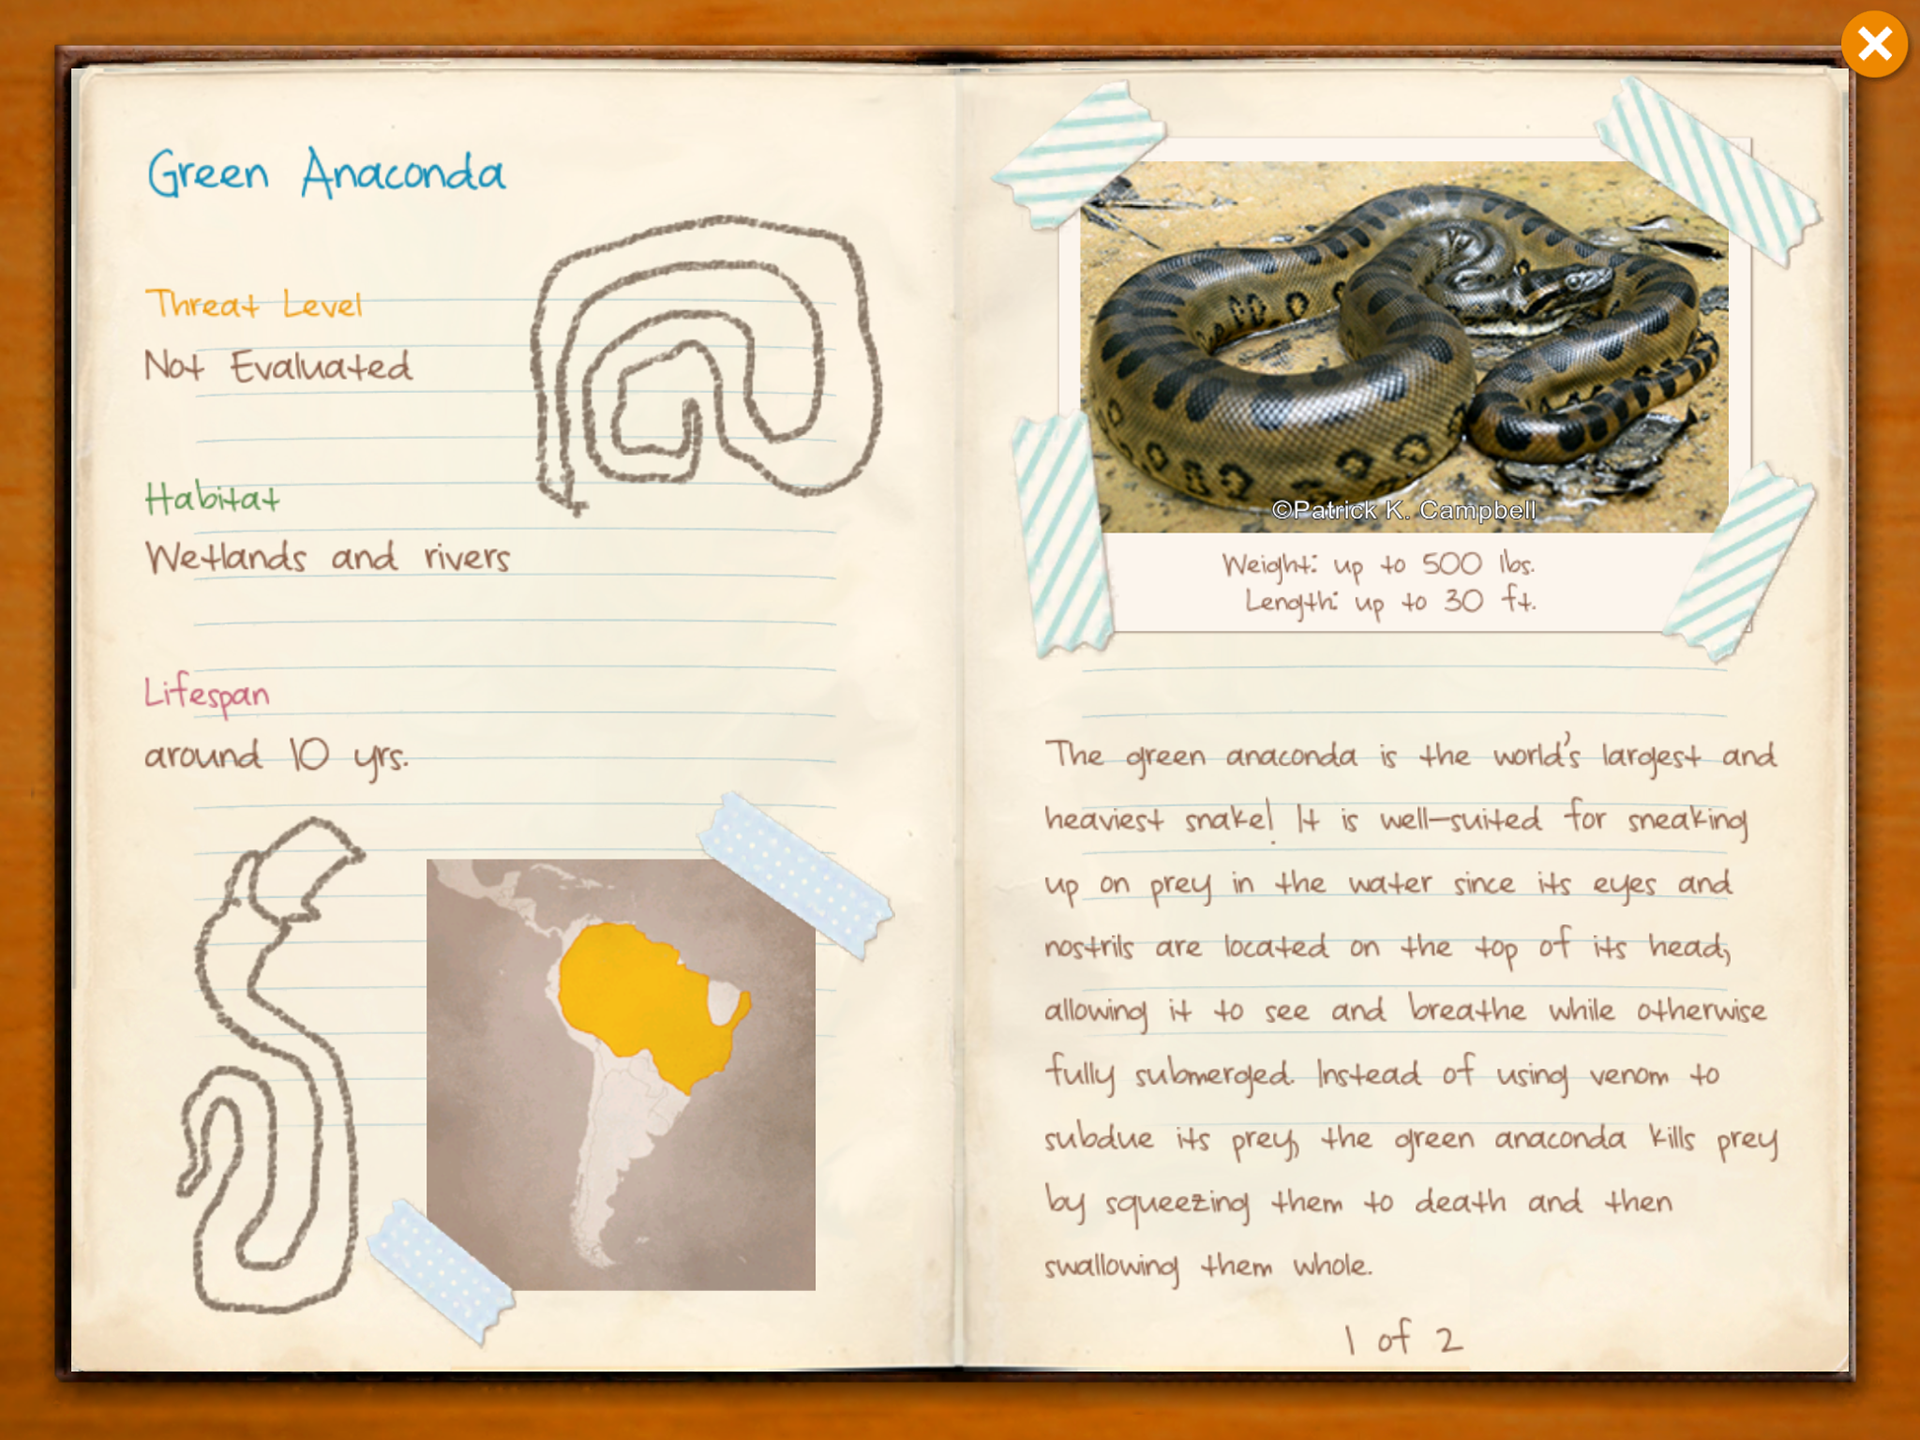 Green Anaconda
Threat Level
Not Evaluated
Habitat
Wetlands and rivers
Lifespan
around 10 yrs.
©Patrick K. Campbell
Weight: up to 500 lbs.
Length: up to 30 ft.
The green anaconda is the world's largest and
heaviest snake! It is well-suited for sneaking
up on prey in the water since its eyes and
nostrils are located on the top of its head,
allowing it to see and breathe while otherwise
fully submerged. Instead of using venom to
subdue its prey, the green anaconda kills prey
by squeezing them to death and then
swallowing them whole.
1 of 2